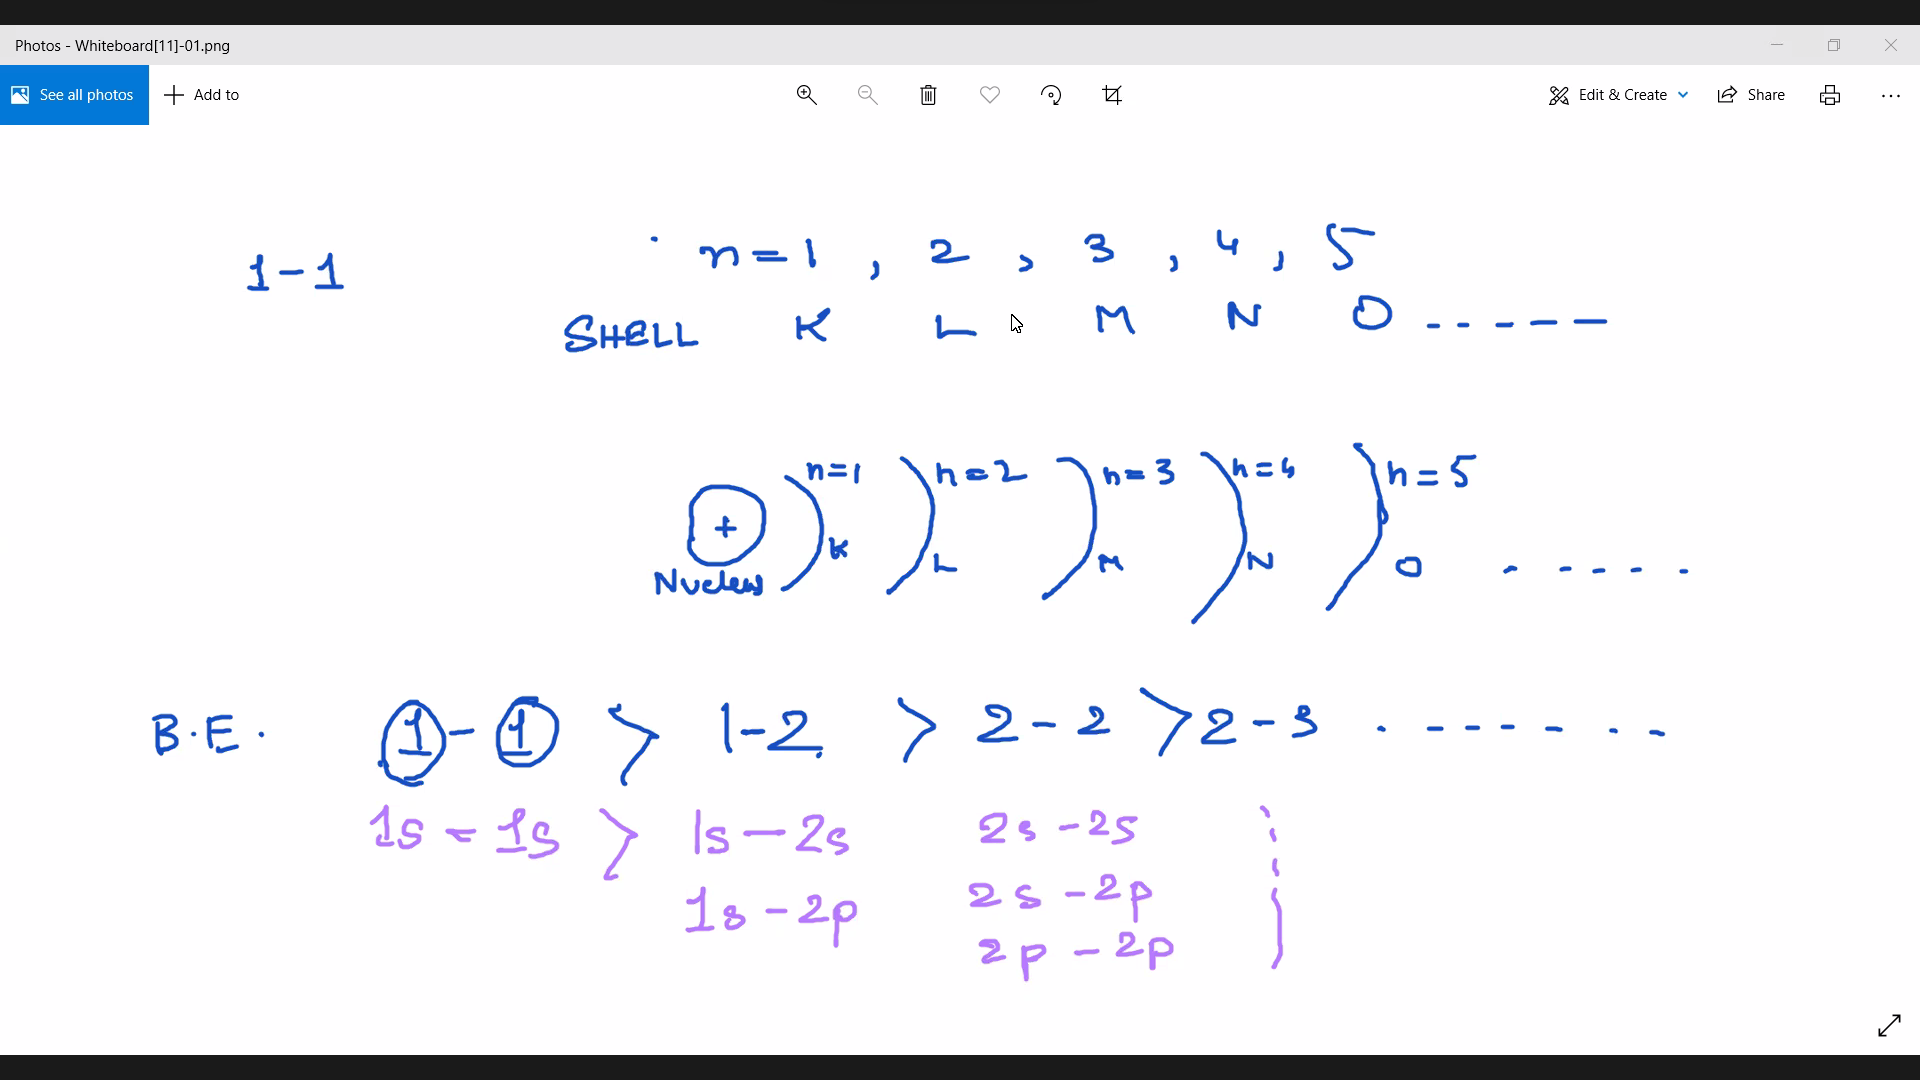 Photos - Whiteboard[11]-01.png
See all photos
Add to
Edit & Create
Share
1-1
n=1 , 2 , 3 , 4 , 5
SHELL K L M N O -----
n=1 n=2 n=3 n=4 n=5
+
K L M N O . - - - .
Nucleus
B.E. 1-1 > 1-2 > 2-2 > 2-3 .------
1s - 1s > 1s - 2s 2s - 2s
1s - 2p 2s - 2p
2p - 2p